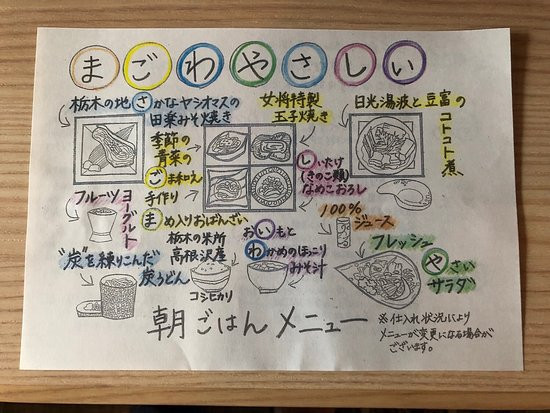 まごわやさしい
栃木の地さかなヤシオマスの
田楽みそ焼き
女将特製
玉子焼き
日光湯波と豆富の
コトコト煮
季節の
青菜の
ごま和え
しいたけ
(きのこ類)
なめこおろし
フルーツ
ヨーグルト
手作り
まめ入りおばんざい
100%
ジュース
"炭"を練りこんだ
炭うどん
栃木の米所
高根沢産
コシヒカリ
おいもと
わかめのほっこり
みそ汁
フレッシュ
やさい
サラダ
朝ごはんメニュー
※仕入れ状況により
メニューが変更になる場合が
ございます。